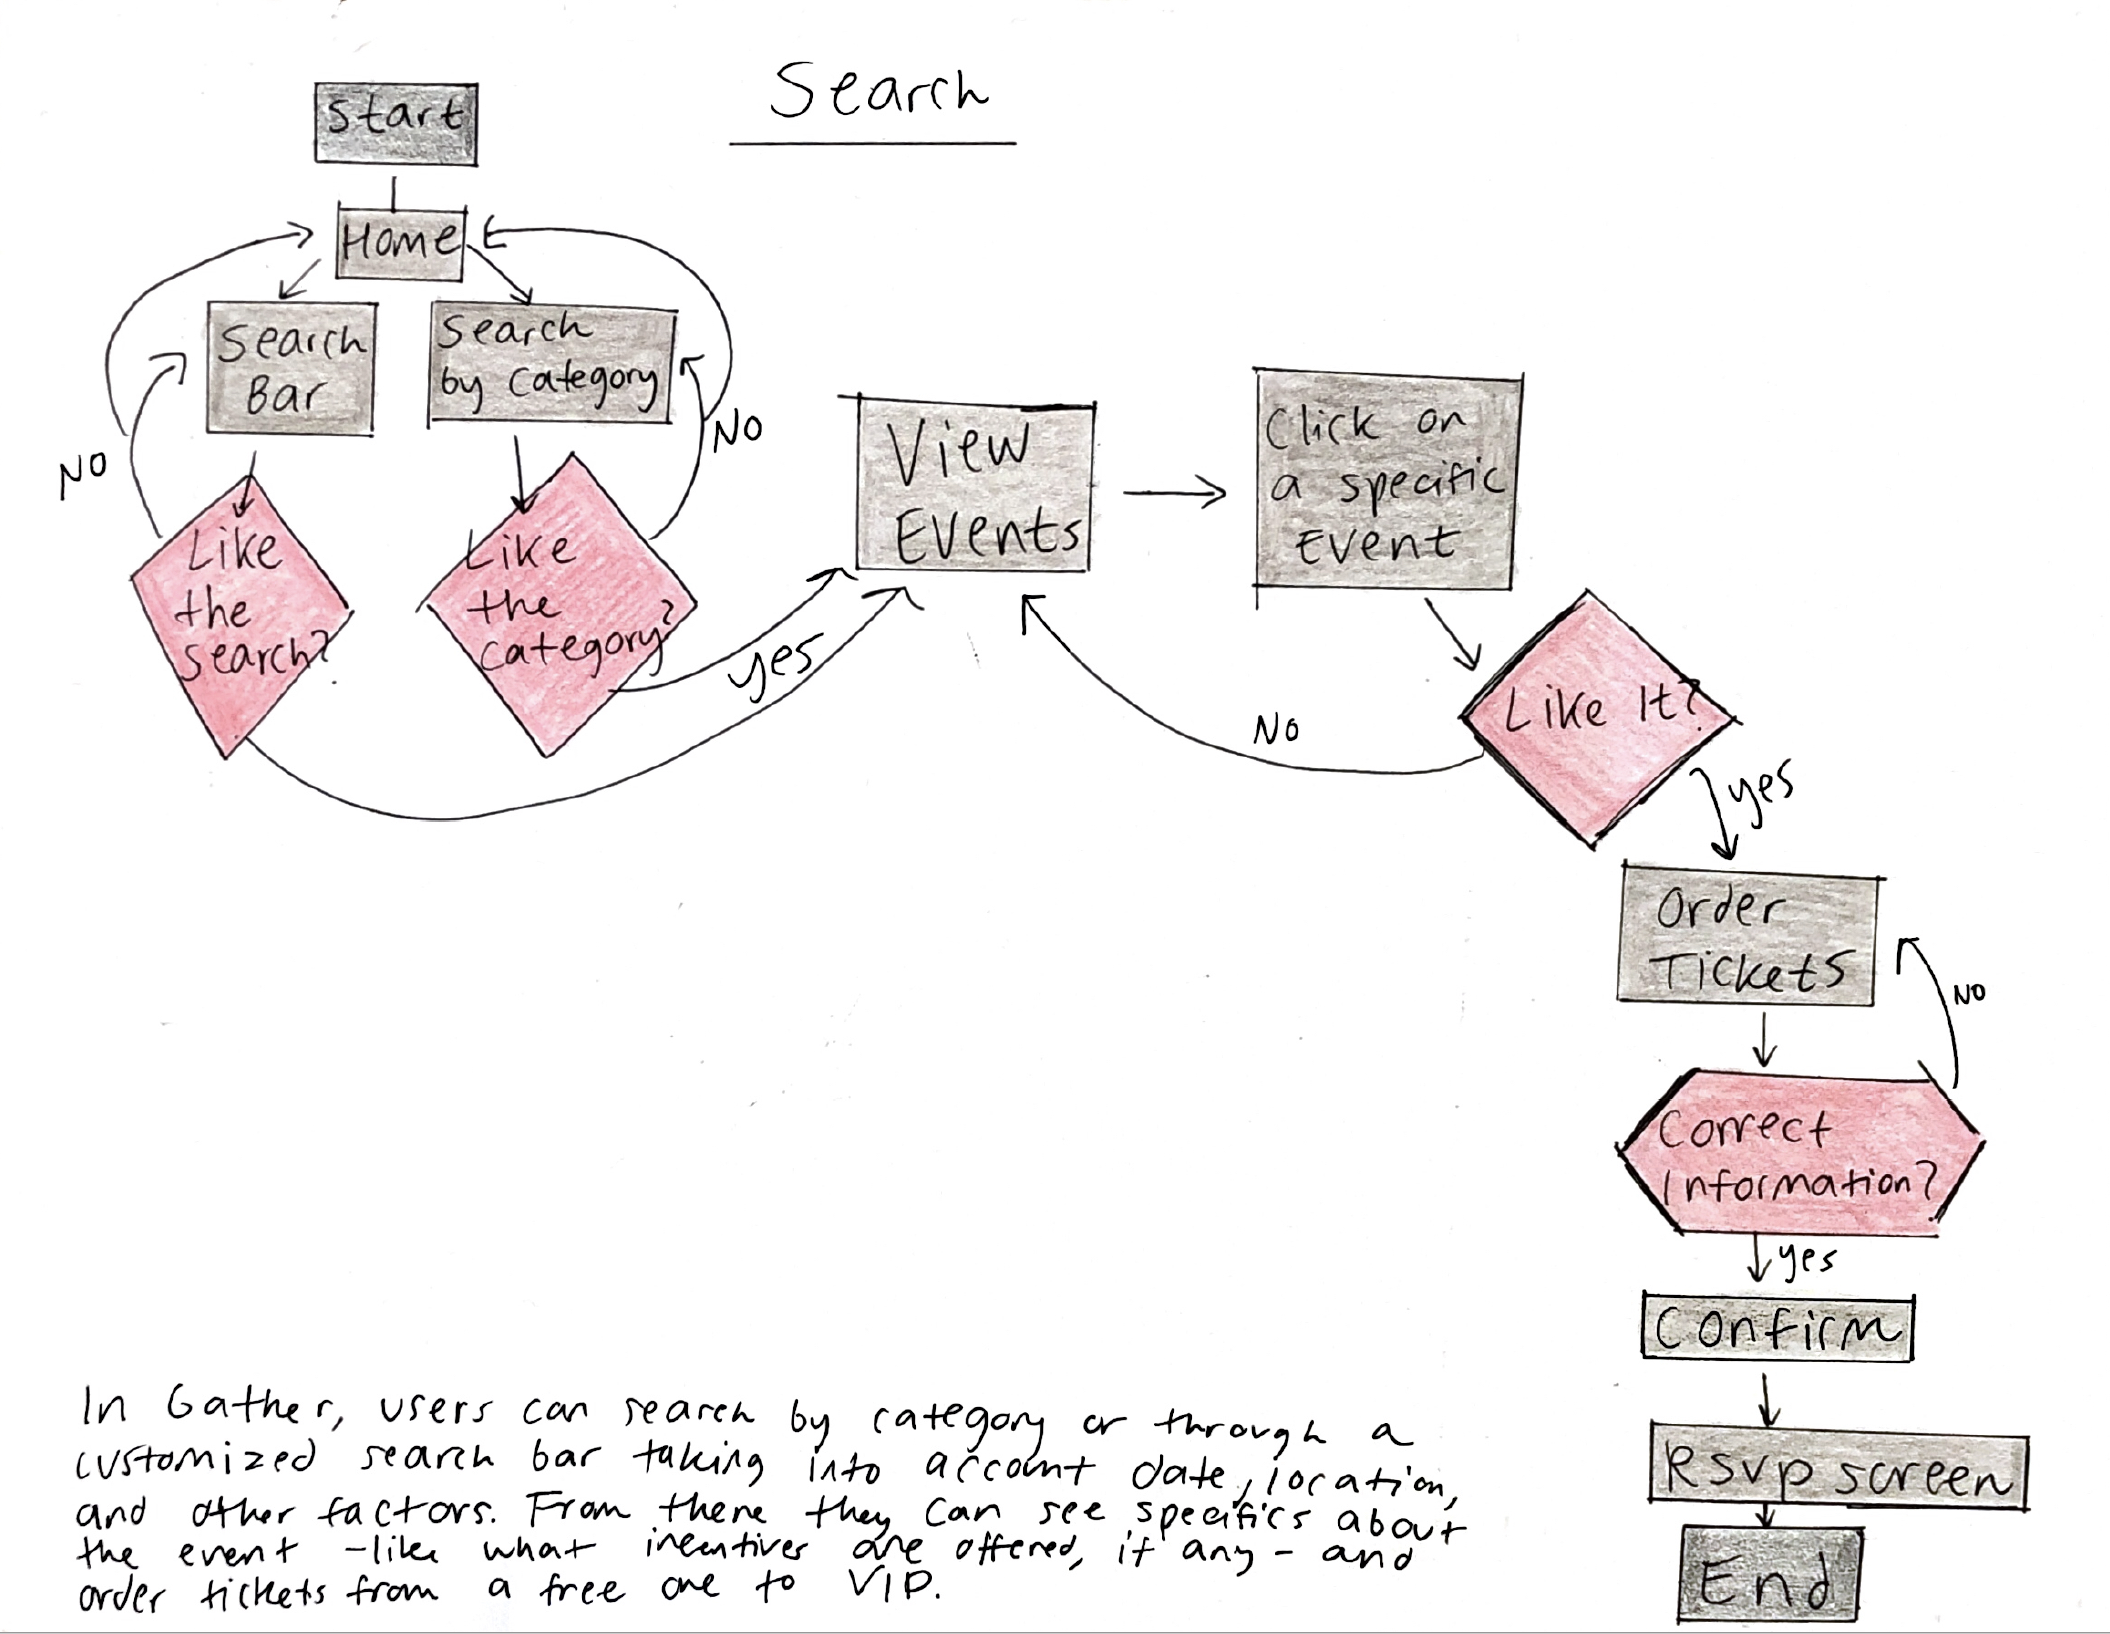 Search
Start
Home
Search
Bar
Search
by Category
NO
NO
Like
the
search?
Like
the
category?
yes
View
Events
Click on
a specific
Event
Like It?
No
yes
Order
Tickets
NO
Correct
Information?
yes
Confirm
Rsvp screen
End
In Gather, users can search by category or through a
customized search bar taking into account date, location,
and other factors. From there they can see specifics about
the event - like what incentives are offered, if any - and
order tickets from a free one to VIP.